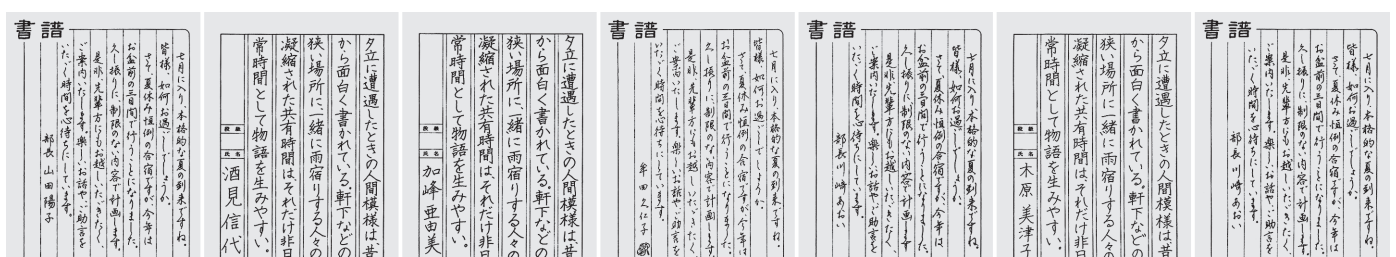 書譜
七月に入り、本格的な夏の到来ですね。
皆様、如何お過ごしでしょうか。
さて、夏休み恒例の合宿ですが、今年は
お盆前の三日間で行うことになりました。
久し振りに、制限のない内容で計画します。
是非、先輩方にもお越しいただきたく、
ご案内いたします。楽しいお話や、ご助言を
いただく時間を心待ちにしています。
部長 山田陽子
夕立に遭遇したときの人間模様は、昔
から面白く書かれている。軒下などの
狭い場所に、一緒に雨宿りする人々の
凝縮された共有時間は、それだけ非日
常時間として物語を生みやすい。
段級
氏名
酒見信代
夕立に遭遇したときの人間模様は、昔
から面白く書かれている。軒下などの
狭い場所に、一緒に雨宿りする人々の
凝縮された共有時間は、それだけ非日
常時間として物語を生みやすい。
段級
氏名
加峰亜由美
書譜
七月に入り、本格的な夏の到来ですね。
皆様、如何お過ごしでしょうか。
さて、夏休み恒例の合宿ですが、今年は
お盆前の三日間で行うことになりました。
久し振りに、制限のない内容で計画します。
是非、先輩方にもお越しいただきたく、
ご案内いたします。楽しいお話や、ご助言を
いただく時間を心待ちにしています。
牟田久仁子
書譜
七月に入り、本格的な夏の到来ですね。
皆様、如何お過ごしでしょうか。
さて、夏休み恒例の合宿ですが、今年は
お盆前の三日間で行うことになりました。
久し振りに、制限のない内容で計画します。
是非、先輩方にもお越しいただきたく、
ご案内いたします。楽しいお話や、ご助言を
いただく時間を心待ちにしています。
部長 川崎あおい
夕立に遭遇したときの人間模様は、昔
から面白く書かれている。軒下などの
狭い場所に、一緒に雨宿りする人々の
凝縮された共有時間は、それだけ非日
常時間として物語を生みやすい。
段級
氏名
木原美津子
書譜
七月に入り、本格的な夏の到来ですね。
皆様、如何お過ごしでしょうか。
さて、夏休み恒例の合宿ですが、今年は
お盆前の三日間で行うことになりました。
久し振りに、制限のない内容で計画します。
是非、先輩方にもお越しいただきたく、
ご案内いたします。楽しいお話や、ご助言を
いただく時間を心待ちにしています。
部長 川崎あおい